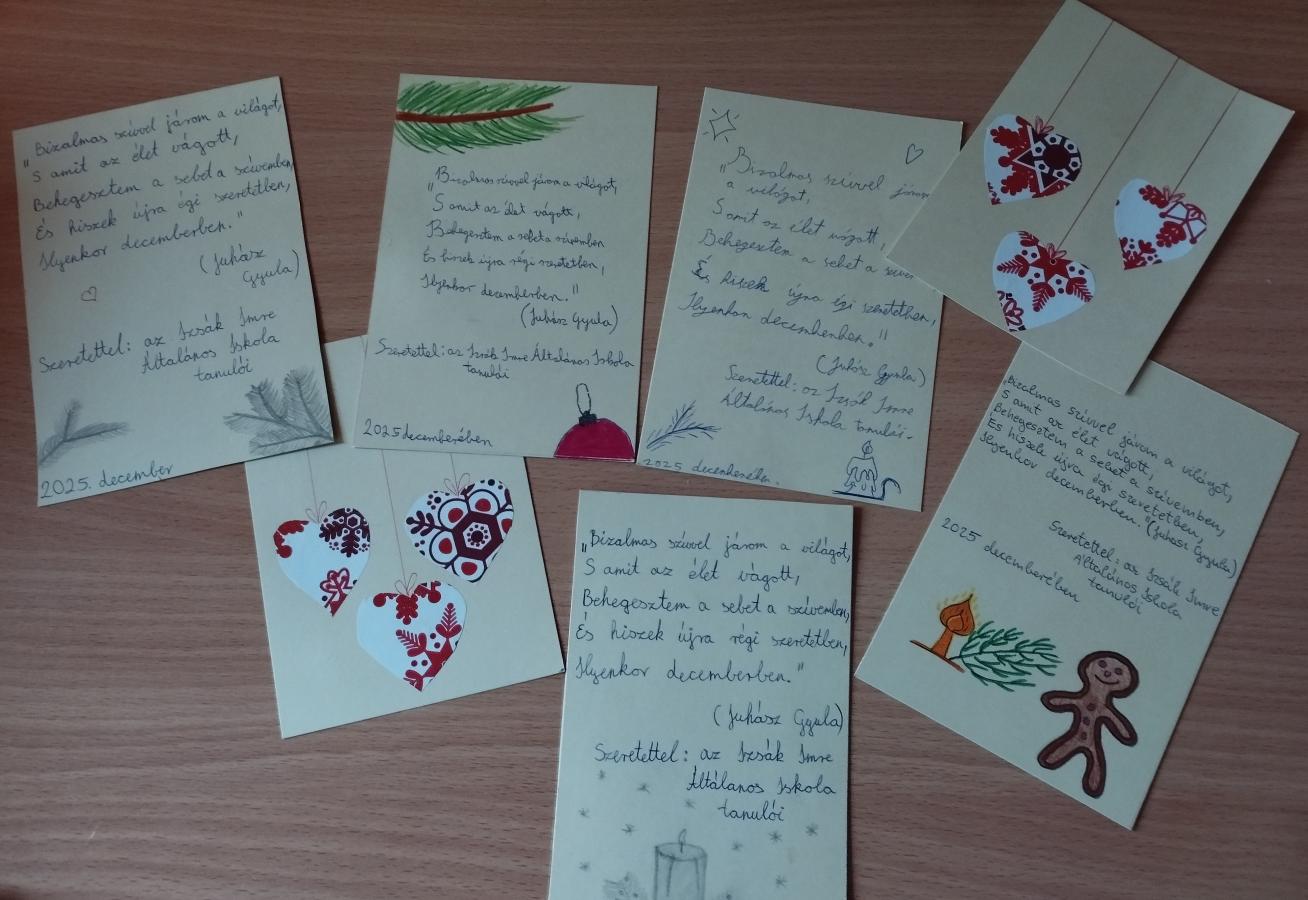 „Bizalmas szívvel járom a világot,
S amit az élet vágott,
Behegesztem a sebet a szívemben,
És hiszek újra égi szeretetben,
Ilyenkor decemberben."
(Juhász
Gyula)
Szeretettel: az Izsák Imre
Általános Iskola
tanulói
2025. december
„Bizalmas szívvel járom a világot,
S amit az élet vágott,
Behegesztem a sebet a szívemben
És hiszek újra régi szeretetben,
Ilyenkor decemberben."
(Juhász Gyula)
Szeretettel: az Izsák Imre Általános Iskola
tanulói
2025 decemberében
„Bizalmas szívvel járom
a világot,
S amit az élet vágott,
Behegesztem a sebet a
És hiszek újra égi szeretetben,
Ilyenkor decemberben."
(Juhász Gyula)
Szeretettel: az Izsák Imre
Általános Iskola tanulói.
2025
„Bizalmas szívvel járom a világot,
S amit az élet vágott,
Behegesztem a sebet a szívemben,
És hiszek újra régi szeretetben,
Ilyenkor decemberben."
(Juhász Gyula)
Szeretettel: az Izsák Imre
Általános Iskola
tanulói
„Bizalmas szívvel járom a világot,
S amit az élet vágott,
Behegesztem a sebet a szívemben,
És hiszek újra égi szeretetben,
Ilyenkor decemberben." (Juhász Gyula)
Szeretettel: az Izsák Imre
Általános Iskola
tanulói
2025 decemberében